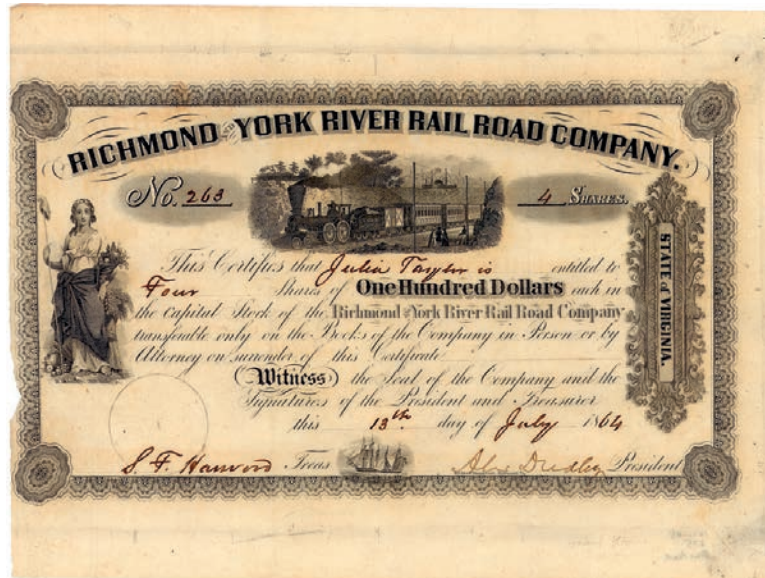 RICHMOND AND YORK RIVER RAIL ROAD COMPANY.
No. 263
4 SHARES.
This Certifies that Julia Taylor is entitled to
Four Shares of One Hundred Dollars each in
the Capital Stock of the Richmond and York River Rail Road Company
transferable only on the Books of the Company in Person or by
Attorney on surrender of this Certificate
Witness the Seal of the Company and the
Signatures of the President and Treasurer
this 13th day of July 1864
S. F. Harwood Treas
Alex Dudley President
STATE of VIRGINIA.